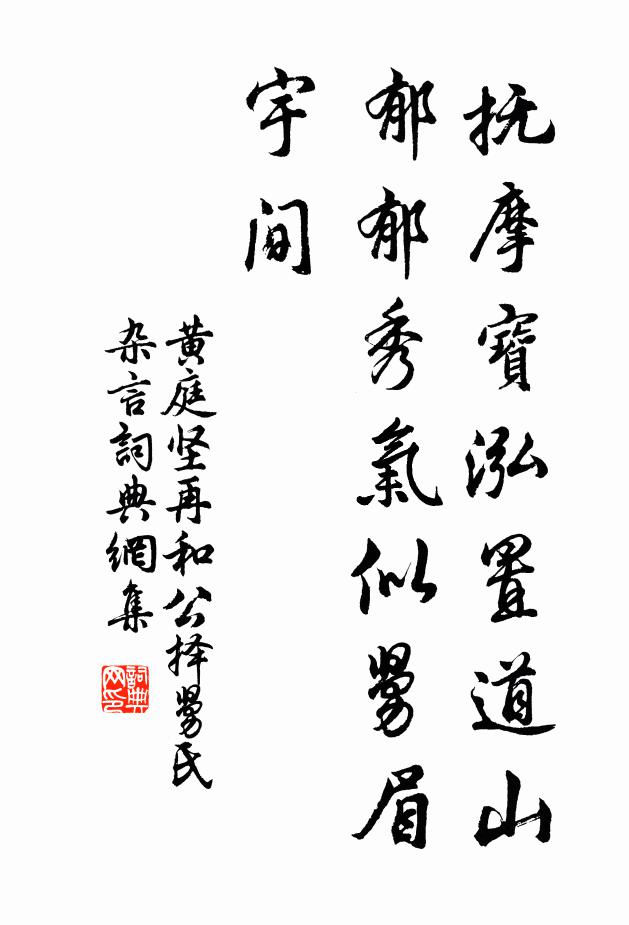 抚摩寶泓置道山
郁郁秀氣似舅眉
宇间
黄庭坚再和公择舅氏
杂言詞典網集
詞典
网印